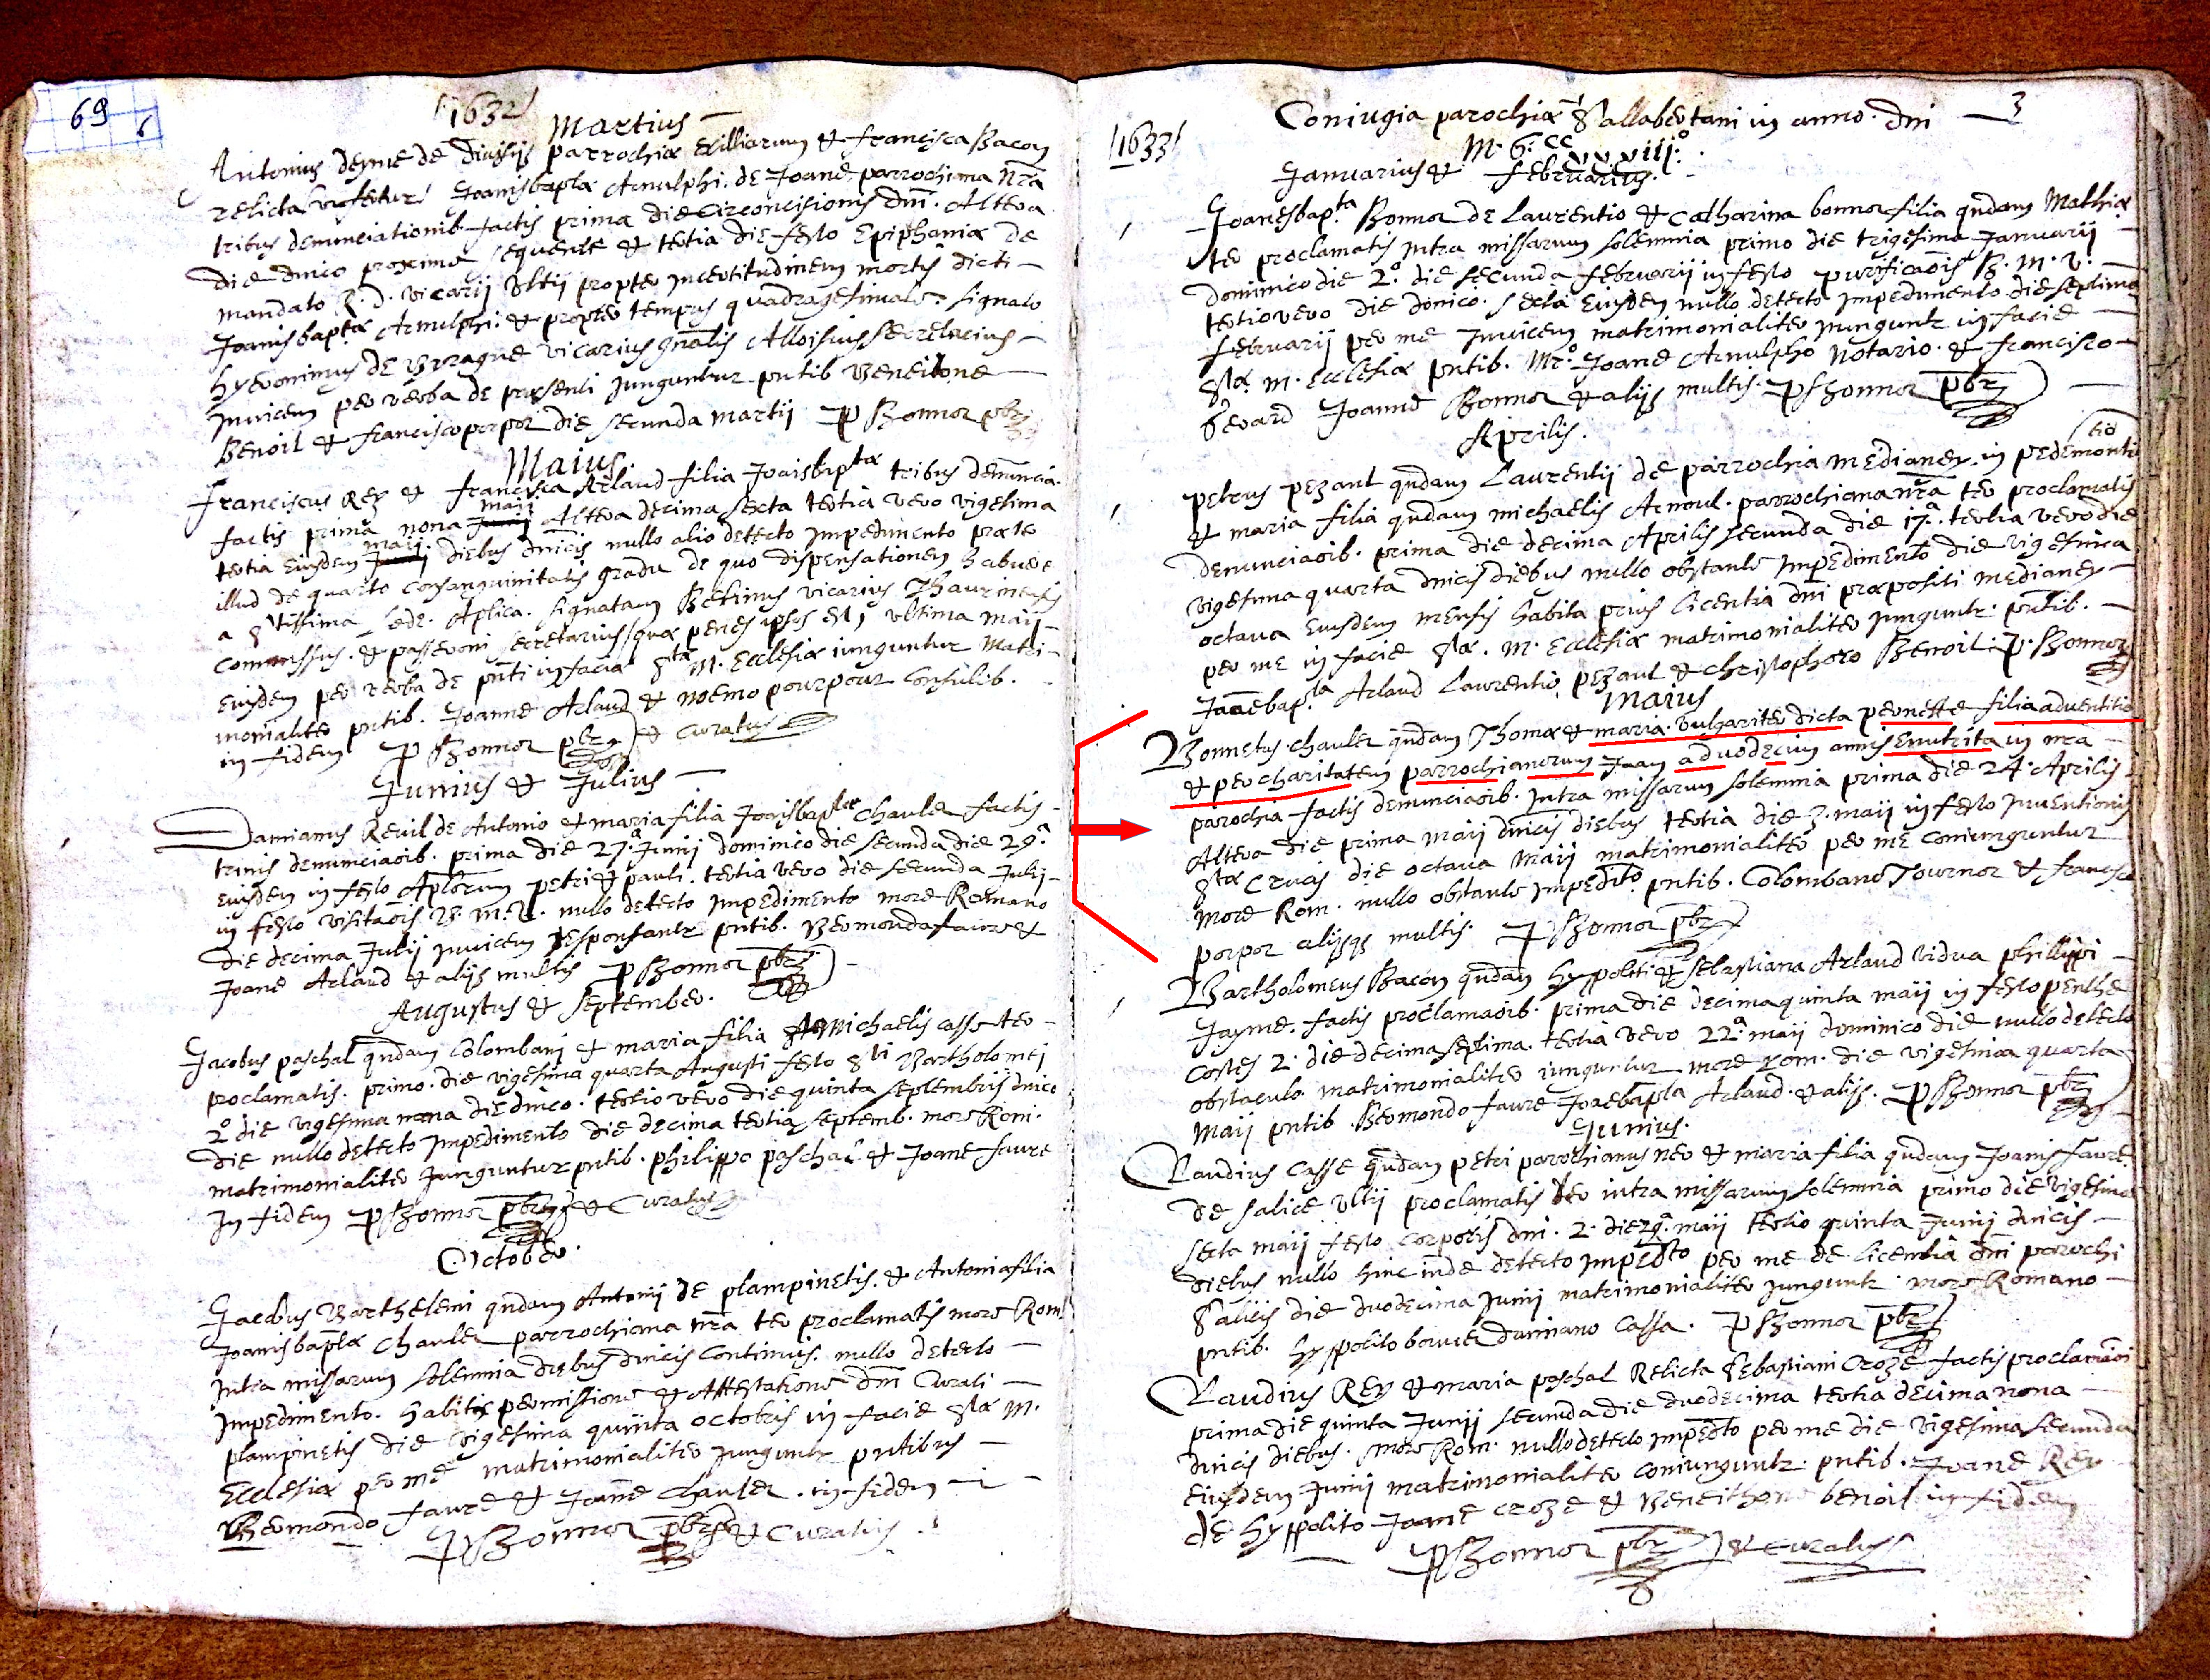 69
6
[1632]
Martius
Antonius deyme de parrochiæ Exilliarum et francisca Bacon
relicta Joanisbaptæ Arnulphi de Joane parrochiana nrâ
tribus denunciationib. factis prima die Circoncisionis dni. Altera
die dnico proxime sequente et tertia die festo Epiphaniæ de
mandato R. D. vicarij Ultij propter incertitudinem mortis dicti
Joanisbaptæ Arnulphi. et propter tempus quadragesimale. signato
hyeronimus de vicarius gnalis Alloisius secretarius
Invicem per verba de præsenti junguntur pntib Beneitone
Benoit et francisco porpor die secunda martij P Bonnor pbr
Maius
franciscus Rey et francisca Arlaud filia Joaisbaptæ tribus denuncia.
factis prima nona maij Altera decima sexta tertia vero vigesima
tertia Eiusdem maij diebus dnicis nullo alio detecto Impedimento præter
illud de quarto consanguinitatis gradu de quo dispensationem habuere
a Stissima sede Aplica. signatam Bellinus vicarius Thaurinensis
commissus. et passeroni secretarius (quæ penes ipsos est) ultima maij
Eiusdem per verba de pnti in facia Stæ M. Ecclesiæ iunguntur Matri-
monialiter pntib. Joanne Arlaud et noemo pourpour Consulib.
in fidem P Bonnor pbr et Curatus
Junius et Julius
Damianus Revil de Antonio et maria filia Joaisbaptæ Chauler factis
trinis denunciaoib. prima die 27.ª Junij dominico die secunda die 29.ª
Eiusdem in festo Aplorum petri et pauli. tertia vero die secunda Julij
in festo visitaois B. M. V. nullo detecto Impedimento more Romano
die decima Julij invicem desponsantr pntib. Bermondo faure et
Joane Arlaud et alijs multis P Bonnor pbr
Augustus et September.
Jacobus paschal qndam Colombani et maria filia Michaelis casse ter
proclamatis. primo. die vigesima quarta Augusti festo Sti Bartholomei
2º die vigesima nona die dnico. tertio vero die quinta septembris dnico
die nullo detecto Impedimento die decima tertia septemb. more Rom.
matrimonialiter Junguntur pntib. philippo paschal et Joane faure
In fidem P Bonnor pbr et Curatus
October.
Jacobus Barthelemi qndam Antonij de plampinetis. et Antonia filia
Joanisbaptæ Chauler parrochiana nrâ ter proclamatis more Rom.
Intra missarum solemnia diebus dnicis continuis. nullo detecto
Impedimento. habitis permissione et Attestatione dni Curati
plampinetis die vigesima quinta octobris in facie Stæ M.
Ecclesiæ per me matrimonialiter Junguntr pntibus
Bermondo faure et Joane Chauler. in fidem
P Bonnor pbr et Curatus
3
Coniugia parochiæ Sallabertani in anno dni
[1633]
M. 6. CC
xxxiij.º
Januarius et februarius.
Joanesbapta Bonnor de Laurentio et Catharina bonnor filia qndam Mathiæ
ter proclamatis Intra missarum solemnia primo die trigesima Januarij
dominico die 2º. die secunda februarij in festo purificaois B. M. V.
tertio vero die dnico. sexta Eiusdem nullo detecto Impedimento die septima
februarij per me Invicem matrimonialiter junguntr in facie
Stæ. M. Ecclesiæ pntib. Mrº. Joane Arnulpho Notario. et francisco
Joanne Bonnor et alijs multis. P Bonnor pbr
Aprilis.
petrus pezant qndam Laurentij de parrochia medianey. in pedemontio
et maria filia qndam michaelis Arnoul. parrochiana nrâ ter proclamatis
denunciaoib. prima die decima Aprilis secunda die 17.ª. tertia vero die
vigesima quarta dnicis diebus nullo obstante Impedimento die vigesima
octava Eiusdem mensis habita prius licentia dni præpositi medianey
per me in facie Stæ. M. Ecclesiæ matrimonialiter junguntr. pntib.
Joanebapta Arlaud Laurentio pezaut et christophoro Benoit. P. Bonnor
maius
Bonnetus chauler qndam Thomæ et maria. vulgariter dicta peonette filia adventitia
et per charitatem parrochianorum Jam a duodecim annis Enutrita in nrâ
parochia factis denunciaoib. Intra missarum solemnia prima die 24. Aprilis
Altera die prima maij dnicis diebus tertia die 3. maij in festo Inventionis
Stæ Crucis die octava Maij matrimonialiter per me coniunguntur
more Rom. nullo obstante Impedito pntib. Colombano Tournor et francisco
porpor alijsqs multis. P Bonnor pbr
Bartholomeus Bacon qndam hyppoliti et sebastiana Arlaud vidua phillippi
Jayme. factis proclamaoib. prima die decima quinta maij in festo penthe
costes 2. die decima septima. tertia vero 22.ª maij dominico die nullo detecto
obstaculo matrimonialiter iunguntur more Rom. die vigesima quarta
Maij pntib. Bermondo faure Joaebapta Arlaud. et alijs. P Bonnor pbr
Junius.
Claudius Casse qndam petri parrochianus ner et maria filia qndam Joanis faure
de salice Ultij proclamatis ter intra missarum solemnia primo die vigesima
sexta maij festo corporis dni. 2. die 29.ª maij tertio quinta Junij dnicis
diebus nullo hinc inde detecto Impedto per me de licentia dni parochi
Salicis die duodecima Junij matrimonialiter junguntr. more Romano
pntib. hyppolito bouvier damiano Cassa. P Bonnor pbr
Claudius Rey et maria paschal Relicta Sebastiani Croze factis proclamaoni
prima die quinta Junij secunda die duodecima tertia decima nona
dnicis diebus. more Rom. nullo detecto impedto per me die vigesima secunda
eiusdem Junij matrimonialiter coniunguntr. pntib. Joane Rey
de hyppolito Joane Croze et Beneithone benoit in fidem
P Bonnor pbr et curatus